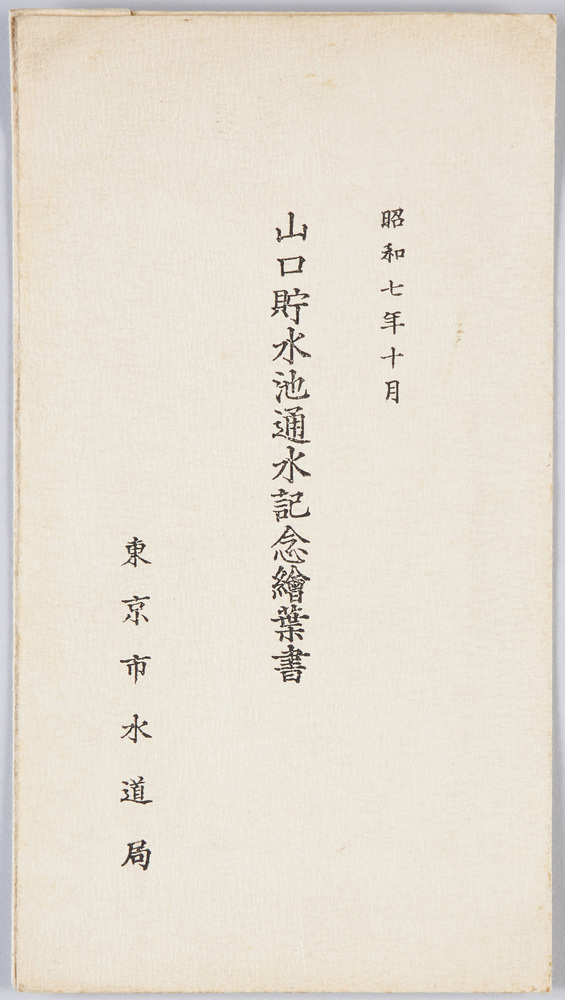 昭和七年十月
山口貯水池通水記念繪葉書
東京市水道局